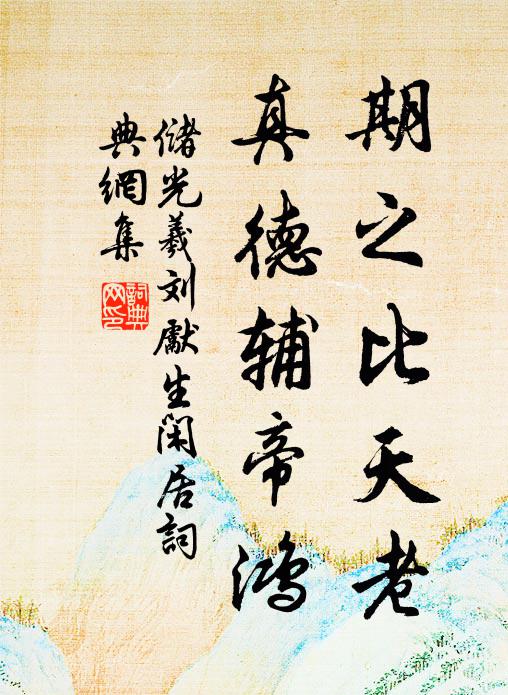 期之比天老
真德辅帝鸿
储光羲刘獻生闲居詞
典網集
詞典網印